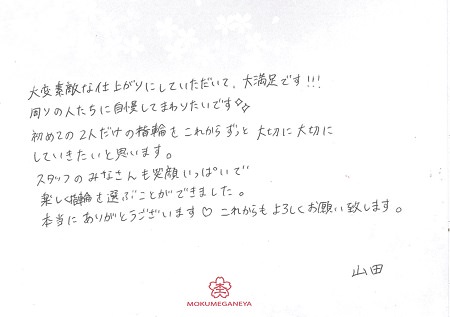 大変素敵な仕上がりにしていただいて、大満足です!!!
周りの人たちに自慢してまわりたいです✨
初めての2人だけの指輪を これからずっと 大切に大切に
していきたいと思います。
スタッフの みなさんも笑顔いっぱいで
楽しく指輪を選ぶことができました。
本当に ありがとうございます♡ これからも よろしくお願い致します。
山田
MOKUMEGANEYA